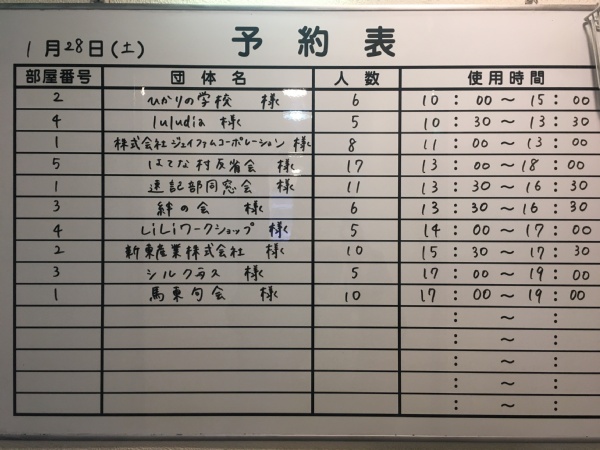 1月28日(土) 予約表
部屋番号 団体名 人数 使用時間
2 ひかりの学校 様 6 10:00～15:00
4 luludia 様 5 10:30～13:30
1 株式会社ジェイファムコーポレーション 様 8 11:00～13:00
5 はてな村反省会 様 17 13:00～18:00
1 速記部同窓会 様 11 13:30～16:30
3 絆の会 様 6 13:30～16:30
4 LiLiワークショップ 様 5 14:00～17:00
2 新東産業株式会社 様 10 15:30～17:30
3 シルクラス 様 5 17:00～19:00
1 馬東句会 様 10 17:00～19:00
: ～ :
: ～ :
: ～ :
: ～ :
: ～ :